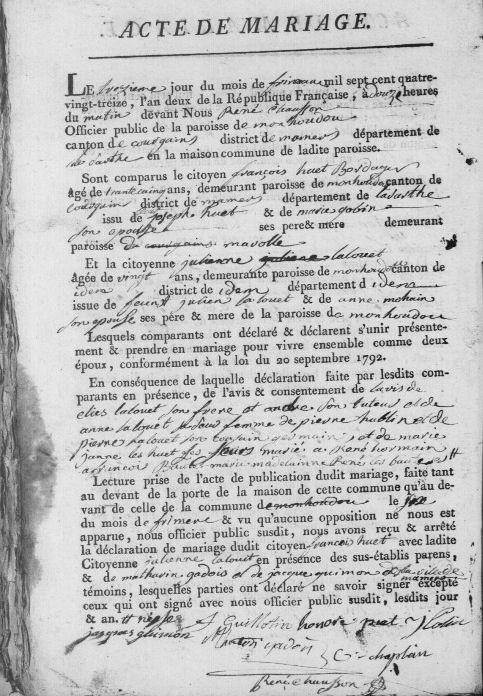 ACTE DE MARIAGE.
LE troisieme jour du mois de frimaire mil sept cent quatre-
vingt-treize, l'an deux de la République Française, à douze heures
du matin devant Nous René Chausson
Officier public de la paroisse de monhoudou
canton de courgains district de mamers département de
la Sarthe en la maison commune de ladite paroisse.
Sont comparus le citoyen françois huet Bordager
âgé de trante cainq ans, demeurant paroisse de monhoudou canton de
courgains district de mamers département de lasarthe
issu de joseph huet & de marie gobin
son epouse ses pere & mere demeurant
paroisse de courgains marolle
Et la citoyenne julienne lalouet
âgée de vingt ans, demeurante paroisse de monhoudou canton de
idem district de idem département d idem
issue de feu julien lalouet & de anne
son epouse ses père & mere de la paroisse da monhoudou
Lesquels comparants ont déclaré & déclarent s'unir présente-
ment & prendre en mariage pour vivre ensemble comme deux
époux, conformément à la loi du 20 septembre 1792.
En conséquence de laquelle déclaration faite par lesdits com-
parants en présence, de l'avis & consentement de lavis de
elies lalouet son frere et andre son tuteur et de
anne lalouet femme de pierre hublin et de
pierre lalouet son cousin germain et de marie
janne les huet ses seurs marié a René hormain
marie madelainne René
Lecture prise de l'acte de publication dudit mariage, faite tant
au devant de la porte de la maison de cette commune qu'au de-
vant de celle de la commune de monhoudou le
du mois de frimere & vu qu'aucune opposition ne nous est
apparue, nous officier public susdit, nous avons reçu & arrêté
la déclaration de mariage dudit citoyen francois huet avec ladite
Citoyenne julienne lalouet en présence des sus-établis parens,
& de mathurin gadois et de jacque quimon
témoins, lesquelles parties ont déclaré ne savoir signer excepté
ceux qui ont signé avec nous officier public susdit, lesdits jour
& an. J Guillotin honoré
jacques guimon chaplain
René chausson